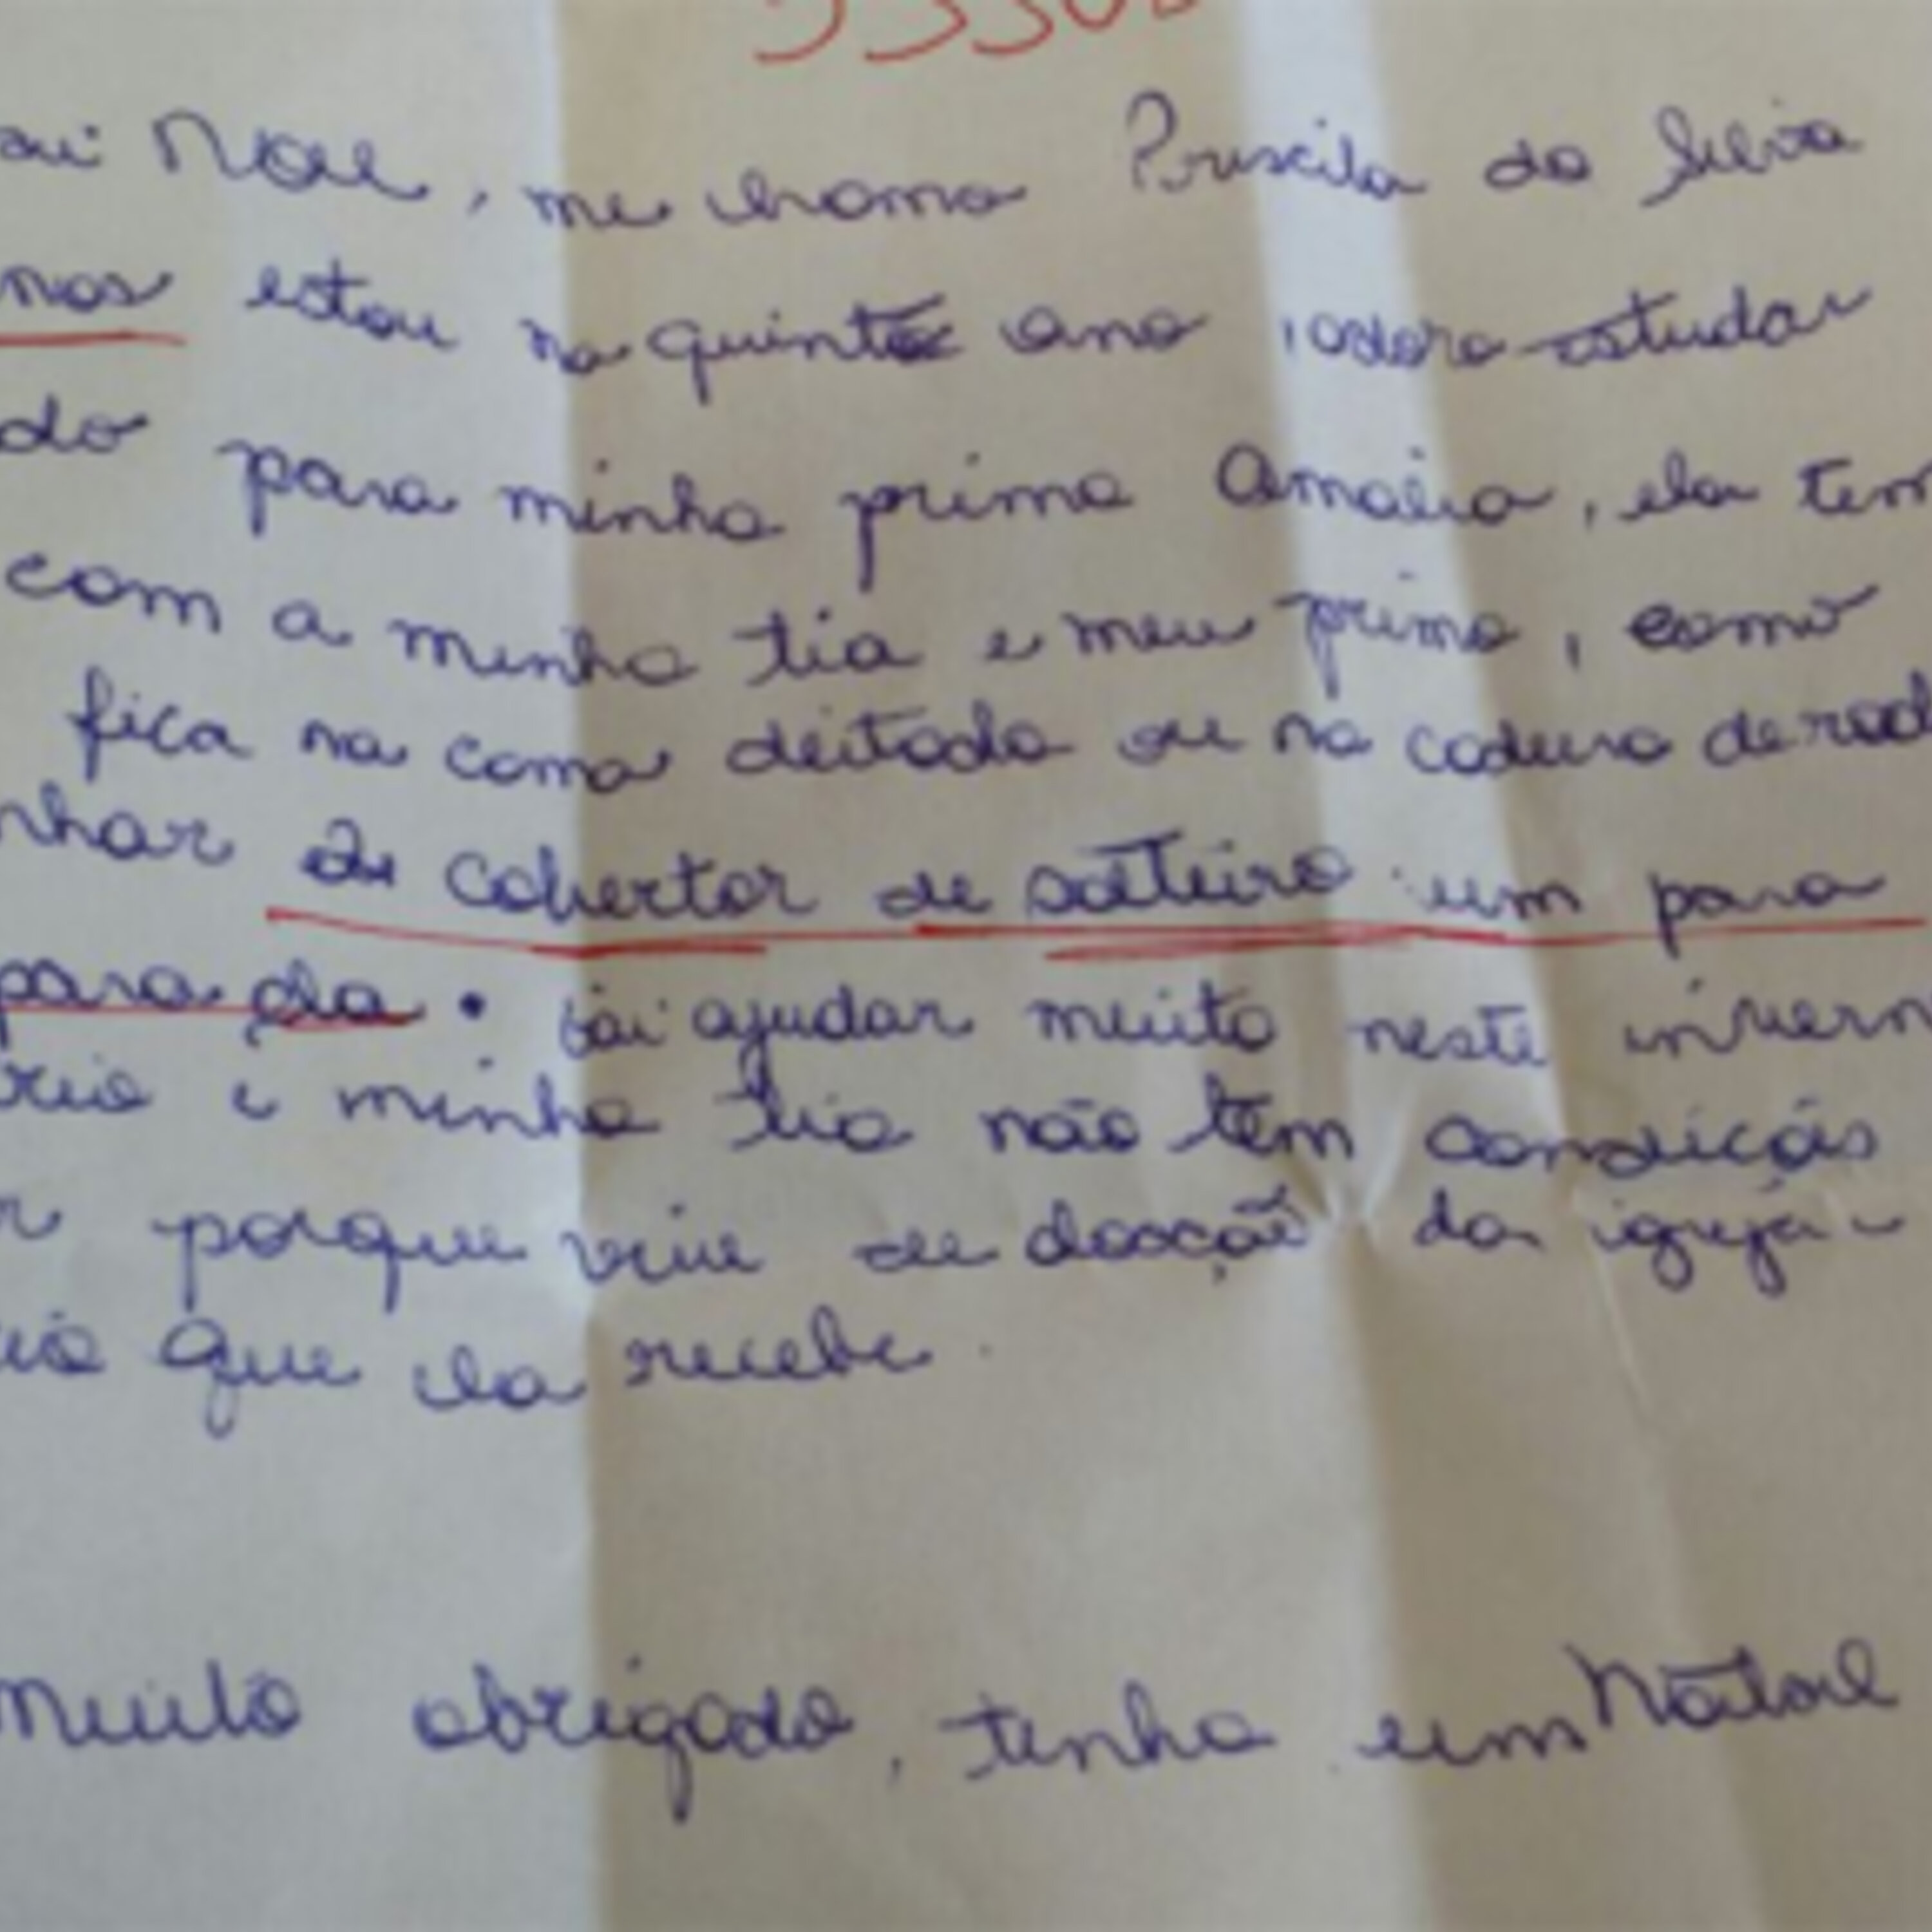 Noel, me chamo Priscila da Silva
nos estou no quinto ano, adoro estudar
do para minha prima Amalia, ela tem
com a minha tia e meu primo, como
fica na cama deitada ou na cadeira de rod
nhar 2 cobertor de solteiro um para
para ela. Vai ajudar muito neste invern
rio e minha tia não tem condições
r porque vive de doação da igreja e
que ela recebe.
Muito obrigado, tenha um Natal